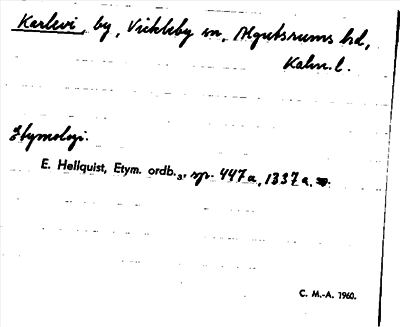 Karlevi, by, Vickleby sn, Algutsrums hd,
Kalm. l.
Etymologi.
E. Hellquist, Etym. ordb.₃, sp. 447 a, 1337 a.
C. M.-A. 1960.